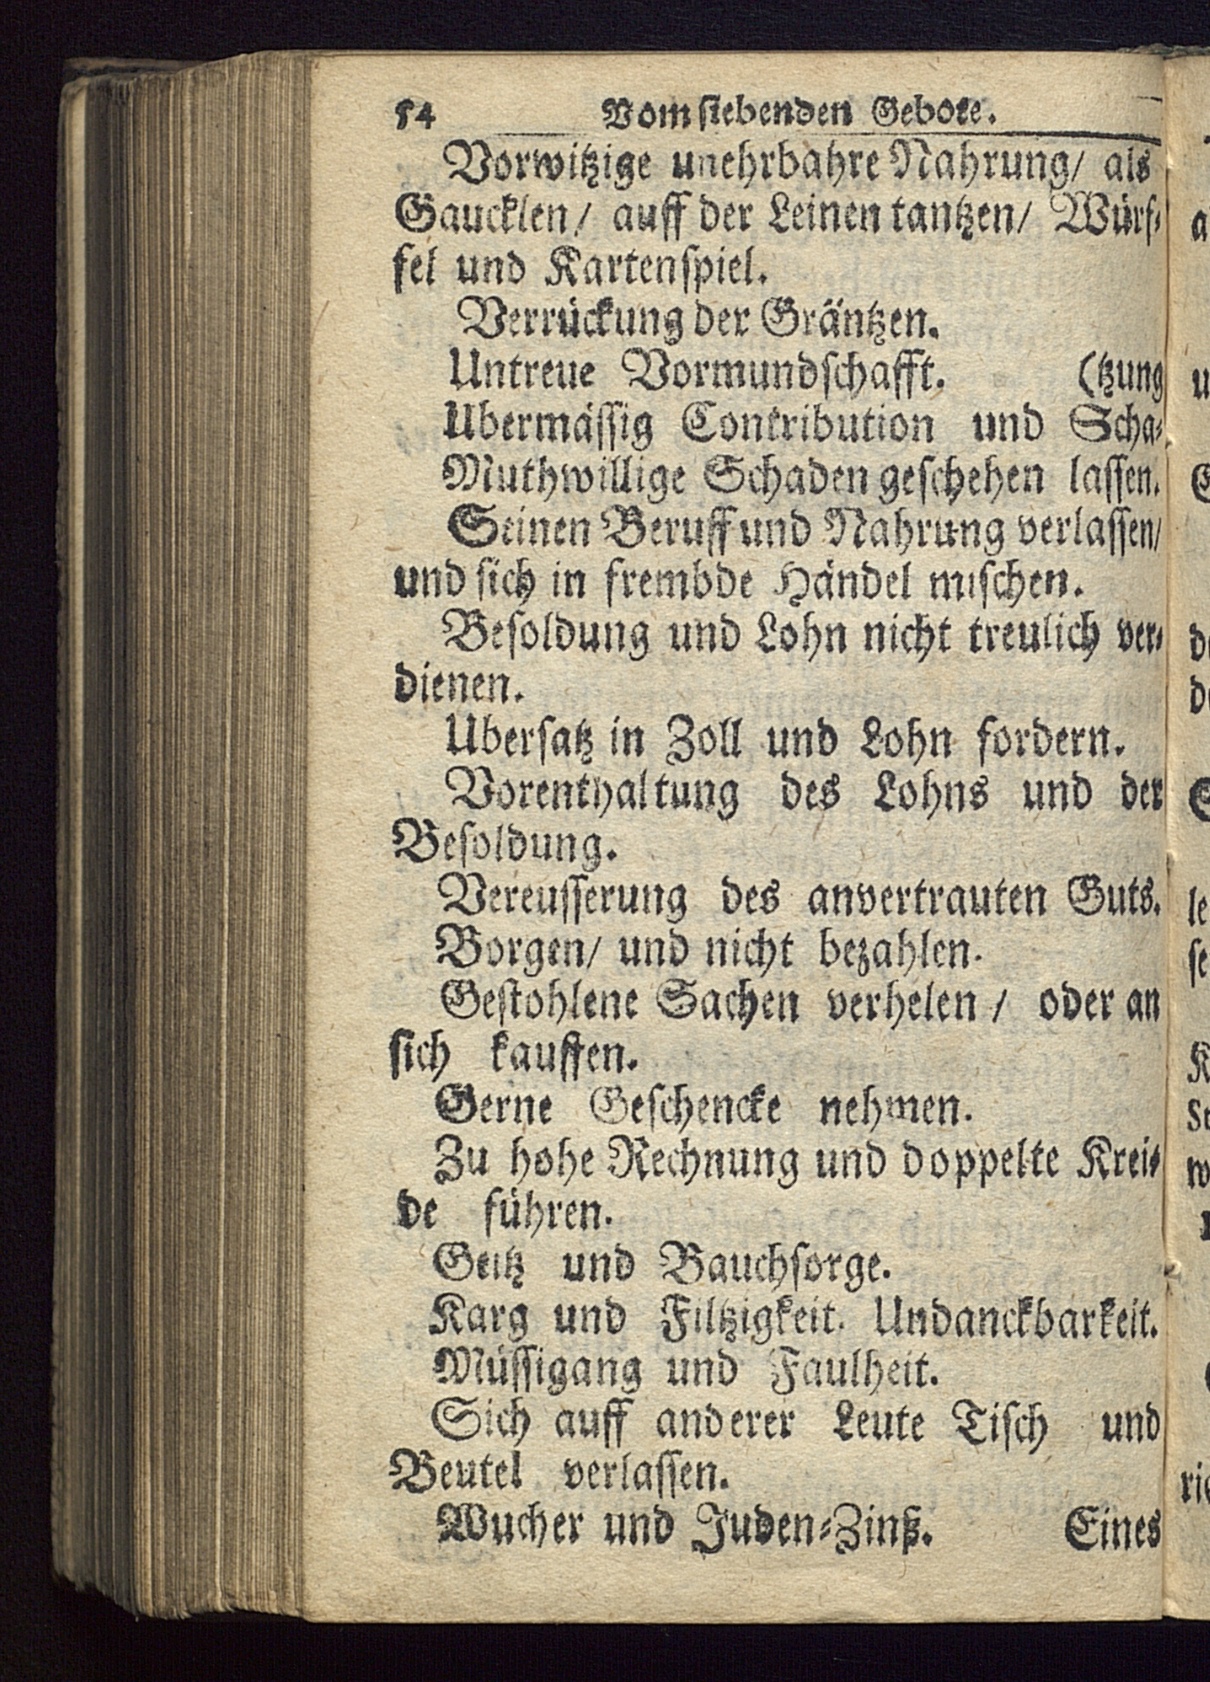 54 Vom siebenden Gebote.
Vorwitzige unehrbahre Nahrung/ als
Gaucklen/ auff der Leinen tantzen/ Würf-
fel und Kartenspiel.
Verrückung der Gräntzen.
Untreue Vormundschafft. (tzung
Ubermässig Contribution und Scha-
Muthwillige Schaden geschehen lassen.
Seinen Beruff und Nahrung verlassen/
und sich in frembde Händel mischen.
Besoldung und Lohn nicht treulich ver-
dienen.
Ubersatz in Zoll und Lohn fordern.
Vorenthaltung des Lohns und der
Besoldung.
Vereusserung des anvertrauten Guts.
Borgen/ und nicht bezahlen.
Gestohlene Sachen verhelen / oder an
sich kauffen.
Gerne Geschencke nehmen.
Zu hohe Rechnung und doppelte Krei-
de führen.
Geitz und Bauchsorge.
Karg und Filtzigkeit. Undanckbarkeit.
Müssigang und Faulheit.
Sich auff anderer Leute Tisch und
Beutel verlassen.
Wucher und Juden-Zinß. Eines